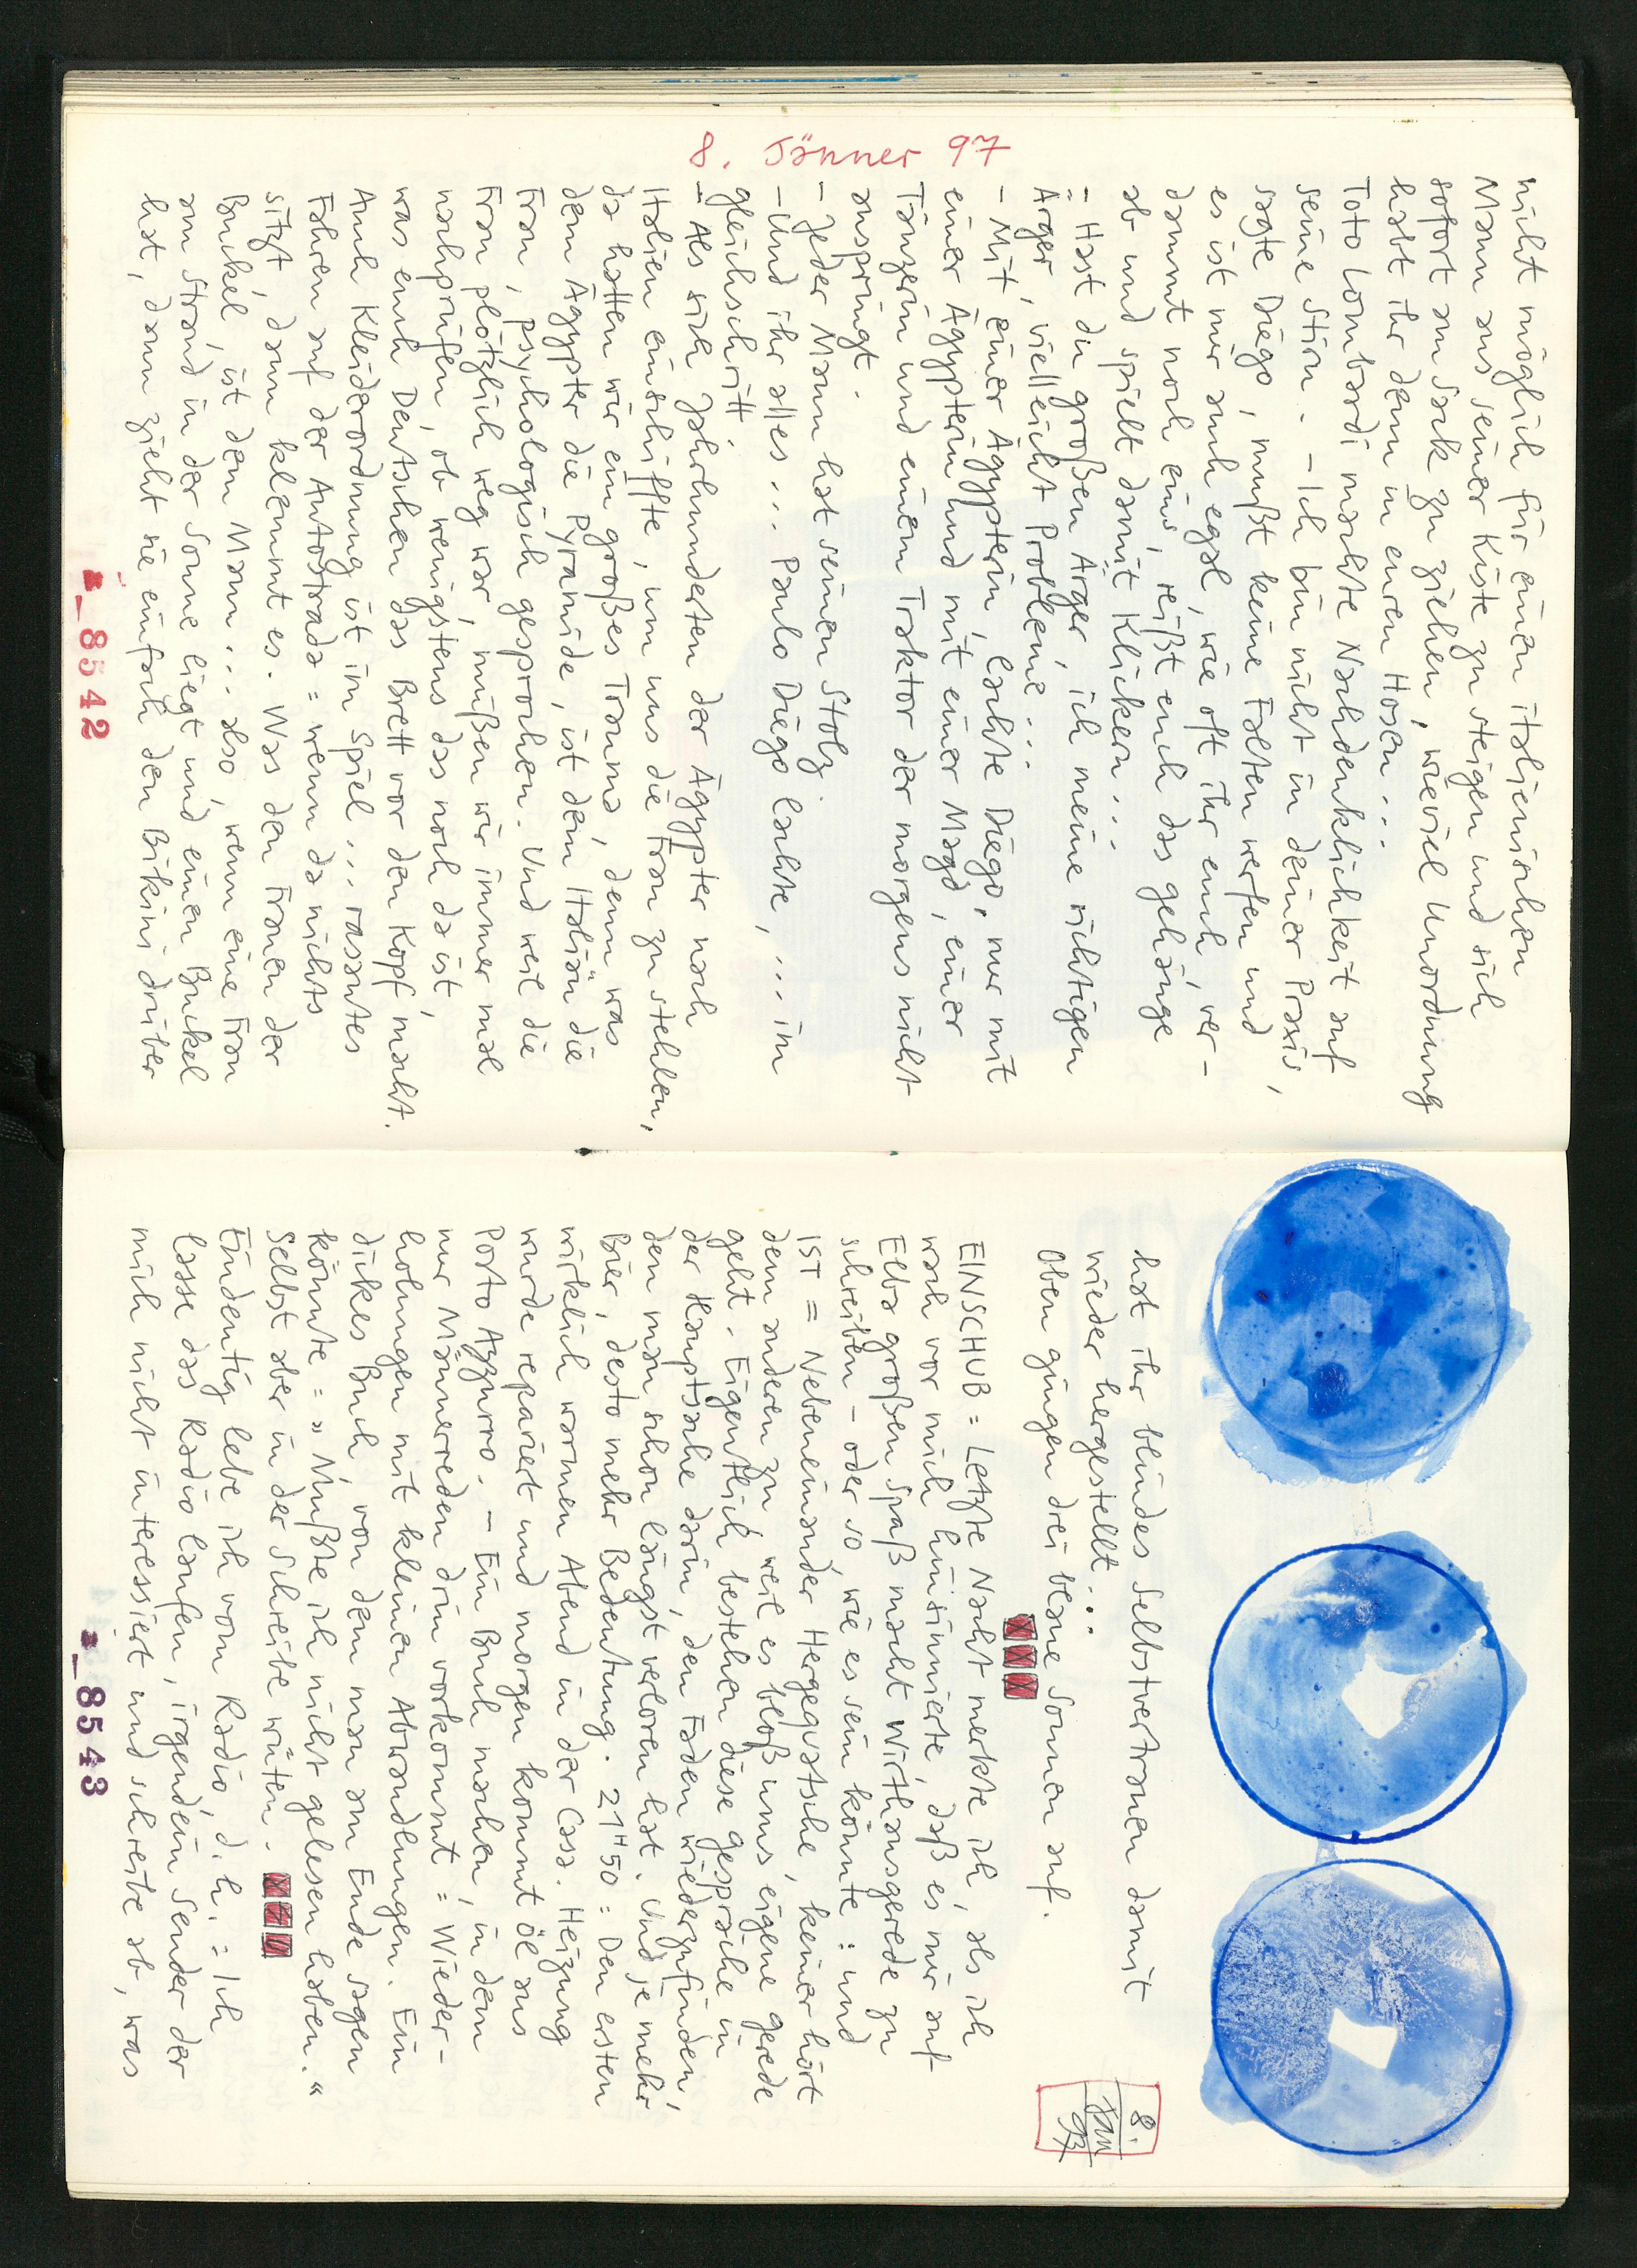 8. Jänner 97
nicht möglich für einen italienischen
Mann aus seiner Kiste zu steigen und sich
sofort am Sack zu ziehen, wieviel Unordnung
habt ihr denn in euren Hosen ...
Toto Lombardi machte Nachdenklichkeit auf
seine Stirn. – Ich bin nicht in deiner Praxis,
sagte Diego, mußt keine Falten werfen und
es ist mir auch egal, wie oft ihr euch ver-
dammt noch eins, reißt euch das gehänge
ab und spielt damit Klickern ...
– Hast du großen Ärger, ich meine richtigen
Ärger, vielleicht Probleme ...
– Mit einer Ägypterin, lachte Diego, nur mit
einer Ägypterin und mit einer Magd, einer
Tänzerin und einem Traktor der morgens nicht
anspringt.
– Jeder Mann hat seinen Stolz.
– Und ihr alles ... Paulo Diego lachte, ... im
gleichschritt.
– Als sich Jahrhunderten der Ägypter nach
Italien einschiffte, um uns die Frau zu stehlen,
da hatten wir ein großes Trauma, denn was
dem Ägypter die Pyramide, ist dem Italiän die
Frau, psychologisch gesprochen. Und weil die
Frau plötzlich weg war, müßen wir immer mal
nachprüfen, ob wenigstens das noch da ist,
was euch Deutschen das Brett vor den Kopf macht.
Auch Kleiderordnung ist im Spiel ... rasantes
Fahren auf der Autostrada = wenn da nichts
sitzt, dann klemmt es. Was den Frauen der
Buckel, ist dem Mann ... also, wenn eine Frau
am Strand in der Sonne liegt und einen Buckel
hat, dann zieht sie einfach den Bikini drüber
_8542
hat ihr blindes Selbstvertrauen damit
wieder hergestellt ...
Oben gingen drei blaue Sonnen auf.
8.
Jan
97
EINSCHUB = Letzte Nacht merkte ich, als ich
wach vor mich hinsinnierte, daß es mir auf
Elba großen Spaß macht Wirthausgerede zu
schreiben – oder so, wie es sein könnte = und
IST = Nebeneinander Hergequatsche, keiner hört
dem anderen zu weil es bloß ums eigene gerede
geht. Eigentlich bestehen diese gespräche in
der Hauptsache darin, den Faden wiederzufinden,
den man schon längst verloren hat. Und je mehr
Bier, desto mehr Bedeutung. 21H50 = Den ersten
wirklich warmen Abend in der Casa. Heizung
wurde repariert und morgen kommt öl aus
Porto Azzurro. – Ein Buch machen, in dem
nur Männerreden drin vorkommt = Wieder-
holungen mit kleinen Abwandlungen. Ein
dickes Buch, von dem man am Ende sagen
könnte = »Müßte ich nicht gelesen haben.“
Selbst aber in der Schreibe wüten.
Eindeutig lebe ich vom Radio, d.h. = Ich
lasse das Radio laufen, irgendein Sender der
mich nicht interessiert und schreibe ab, was
_8543